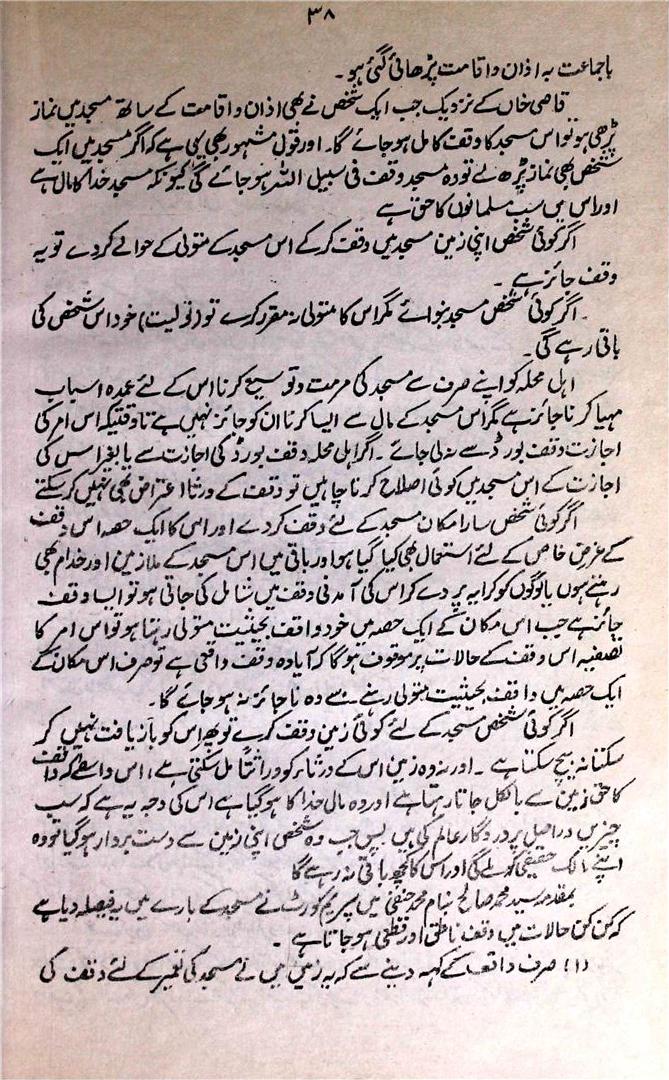 ۳۸
باجماعت بہ اذان و اقامت پڑھائی گئی ہو۔
قاضی خاں کے نزدیک جب ایک شخص نے بھی اذان و اقامت کے ساتھ مسجد میں نماز
پڑھی ہو تو اس مسجد کا وقف کامل ہو جائے گا۔ اور قول مشہور بھی یہی ہے کہ اگر مسجد میں ایک
شخص بھی نماز پڑھ لے تو وہ مسجد وقف فی سبیل اللہ ہو جائے گی کیونکہ مسجد خدا کا مال ہے
اور اس میں سب مسلمانوں کا حق ہے
اگر کوئی شخص اپنی زمین مسجد میں وقف کر کے اس مسجد کے متولی کے حوالے کر دے تو یہ
وقف جائز ہے۔
اگر کوئی شخص مسجد بنوائے مگر اس کا متولی نہ مقرر کرے تو (تولیت) خود اس شخص کی
باقی رہے گی۔
اہل محلہ کو اپنے صرف سے مسجد کی مرمت و توسیع کرنا اس کے لئے عمدہ اسباب
مہیا کرنا جائز ہے مگر اس مسجد کے مال سے ایسا کرنا ان کو جائز نہیں ہے تا وقتیکہ اس امر کی
اجازت وقف بورڈ سے نہ لی جائے۔ اگر اہل محلہ وقف بورڈ کی اجازت سے یا بغیر اس کی
اجازت کے اس مسجد میں کوئی اصلاح کرنا چاہیں تو وقف کے ورثا اعتراض بھی نہیں کر سکتے
اگر کوئی شخص سارا مکان مسجد کے لئے وقف کر دے اور اس کا ایک حصہ اس وقف
کے غرض خاص کے لئے استعمال بھی کیا گیا ہو اور باقی میں اس مسجد کے ملازمین اور خدام بھی
رہتے ہوں یا لوگوں کو کرایہ پر دے کر اس کی آمدنی وقف میں شامل کی جاتی ہو تو ایسا وقف
جائز ہے جب اس مکان کے ایک حصہ میں خود واقف بحیثیت متولی رہتا ہو تو اس امر کا
تصفیہ اس وقف کے حالات پر موقوف ہو گا کہ آیا وہ وقف واقعی ہے تو صرف اس مکان کے
ایک حصہ میں واقف بحیثیت متولی رہنے سے وہ ناجائز نہ ہو جائے گا۔
اگر کوئی شخص مسجد کے لئے کوئی زمین وقف کرے تو پھر اس کو باز یافت نہیں کر
سکتا نہ بیچ سکتا ہے۔ اور نہ وہ زمین اس کے ورثاء کو وراثتاً مل سکتی ہے، اس واسطے کہ واقف
کا حق زمین سے بالکل جاتا رہتا ہے اور وہ مال خدا کا ہو گیا ہے اس کی وجہ یہ ہے کہ سب
چیزیں دراصل پروردگار عالم کی ہیں پس جب وہ شخص اپنی زمین سے دست بردار ہو گیا تو وہ
اپنے مالک حقیقی کو ملے گی اور اس کا کچھ باقی نہ رہے گا
بمقدمہ سید محمد صالح بنام محمد حنفی میں سپریم کورٹ نے مسجد کے بارے میں یہ فیصلہ دیا ہے
کہ کن کن حالات میں وقف ناطق اور قطعی ہو جاتا ہے۔
(۱) صرف واقف کے کہہ دینے سے کہ یہ زمین میں نے مسجد کی تعمیر کے لئے وقف کی